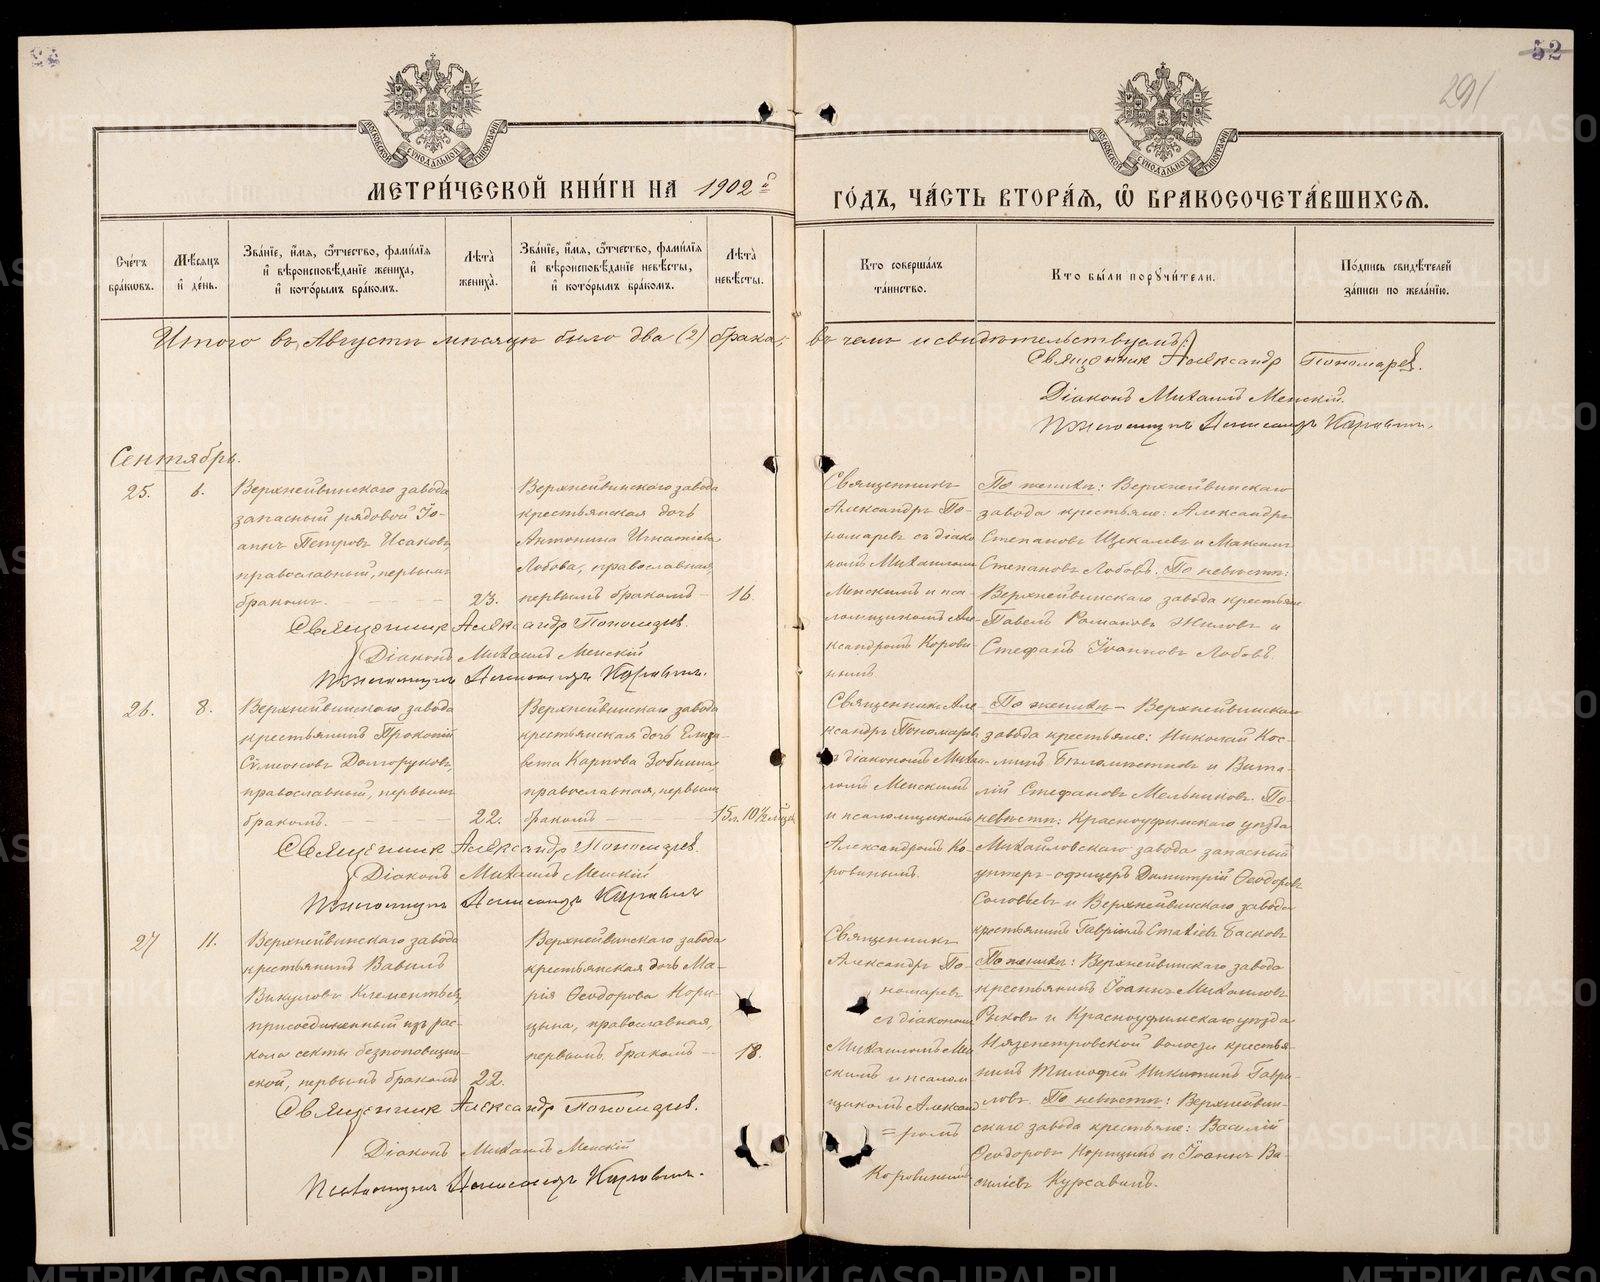 52
291
МОСКОВСКОЙ СѴНОДАЛЬНОЙ ТИПОГРАФІИ
МОСКОВСКОЙ СѴНОДАЛЬНОЙ ТИПОГРАФІИ
МЕТРИ́ЧЕСКОЙ КНИ́ГИ НА 1902й
ГО́ДЪ, ЧА́СТЬ ВТОРА́Я, Ѡ҆ БРАКОСОЧЕТА́ВШИХСЯ.
Сче́тъ бра́кωвъ.
Мѣ́сяцъ и҆ де́нь.
Зва́нїе, и҆́мя, ѻ҆́тчество, фами́лїя и҆ вѣроисповѣ́данїе жениха̀, и҆ кото́рымъ бра́комъ.
Лѣ́та̀ жениха̀.
Зва́нїе, и҆́мя, ѻ҆́тчество, фами́лїя и҆ вѣроисповѣ́данїе невѣ́сты, и҆ кото́рымъ бра́комъ.
Лѣ́та̀ невѣ́сты.
Кто соверша́лъ та́инство.
Кто бы́ли порꙋчи́тели.
По́дпись свидѣ́телей за́писи по жела́нїю.
Итого въ Августѣ мѣсяцѣ было два (2) брака, въ чемъ и свидѣтельствуемъ:
Священникъ Александръ Пономаревъ.
Діаконъ Михаилъ Менскій.
Псаломщикъ Александръ Коровинъ.
Сентябрь.
25.
6.
Верхнейвинскаго завода
запасный рядовой Іо-
аннъ Петровъ Исаковъ
православный, первымъ
бракомъ.
23.
Верхнейвинскаго завода
крестьянская дочь
Антонина Игнатіева
Лобова, православная,
первымъ бракомъ
16.
Священникъ
Александръ По-
номаревъ съ діако
номъ Михаиломъ
Менскимъ и пса-
ломщикомъ Але-
ксандромъ Корови-
нымъ
По женихѣ: Верхнейвинскаго
завода крестьяне: Александръ
Степановъ Щекалевъ и Максимъ
Степановъ Лобовъ. По невѣстѣ:
Верхнейвинскаго завода крестьяне
Павелъ Романовъ Жиловъ и
Стефанъ Іоанновъ Лобовъ.
Священникъ Александръ Пономаревъ.
Діаконъ Михаилъ Менскій
Псаломщикъ Александръ Коровинъ.
26.
8.
Верхнейвинскаго завода
крестьянинъ Прокопій
Сѵмеоновъ Долгоруковъ,
православный, первымъ
бракомъ.
22.
Верхнейвинскаго завода
крестьянская дочь Елиза-
вета Карпова Зобнина,
православная, первымъ
бракомъ
15л. 10½ мѣс
Священникъ Але
ксандръ Пономаревъ
съ діакономъ Миха-
ломъ Менскимъ
и псаломщикомъ
Александромъ Ко-
ровинымъ.
По женихѣ — Верхнейвинскаго
завода крестьяне: Николай Кос-
минъ Бѣломѣстновъ и Вита-
лій Стефановъ Мельниковъ. По
невѣстѣ: Красноуфимскаго уѣзда
Михайловскаго завода запасный
унтеръ-офицеръ Димитрій Ѳеодоровъ
Соловьевъ и Верхнейвинскаго завода
крестьянинъ Гавріилъ Басковъ
Священникъ Александръ Пономаревъ.
Діаконъ Михаилъ Менскій
Псаломщикъ Александръ Коровинъ
27
11.
Верхнейвинскаго завода
крестьянинъ Вавилъ
Викуловъ Клементьевъ,
присоединенный изъ рас-
кола секты безпоповщин-
ской, первымъ бракомъ
22.
Верхнейвинскаго завода
крестьянская дочь Ма-
рія Ѳеодорова Кори-
цына, православная,
первымъ бракомъ —
18.
Священникъ
Александръ По-
номаревъ
съ діакономъ
Михаиломъ Мен
скимъ и псалом
щикомъ Алексан
=ромъ
Коровинымъ
По женихѣ: Верхнейвинскаго завода
крестьянинъ Іоаннъ Михаиловъ
Рыковъ и Красноуфимскаго уѣзда
Нязепетровской волости крестья-
нинъ Тимофей Никитинъ Гаври-
ловъ. По невѣстѣ: Верхнейвин-
скаго завода крестьяне: Василій
Ѳеодоровъ Корицынъ и Іоаннъ Ва-
силіевъ Курсавинъ.
Священникъ Александръ Пономаревъ.
Діаконъ Михаилъ Менскій
Псаломщикъ Александръ Коровинъ.
METRIKI.GASO-URAL.RU